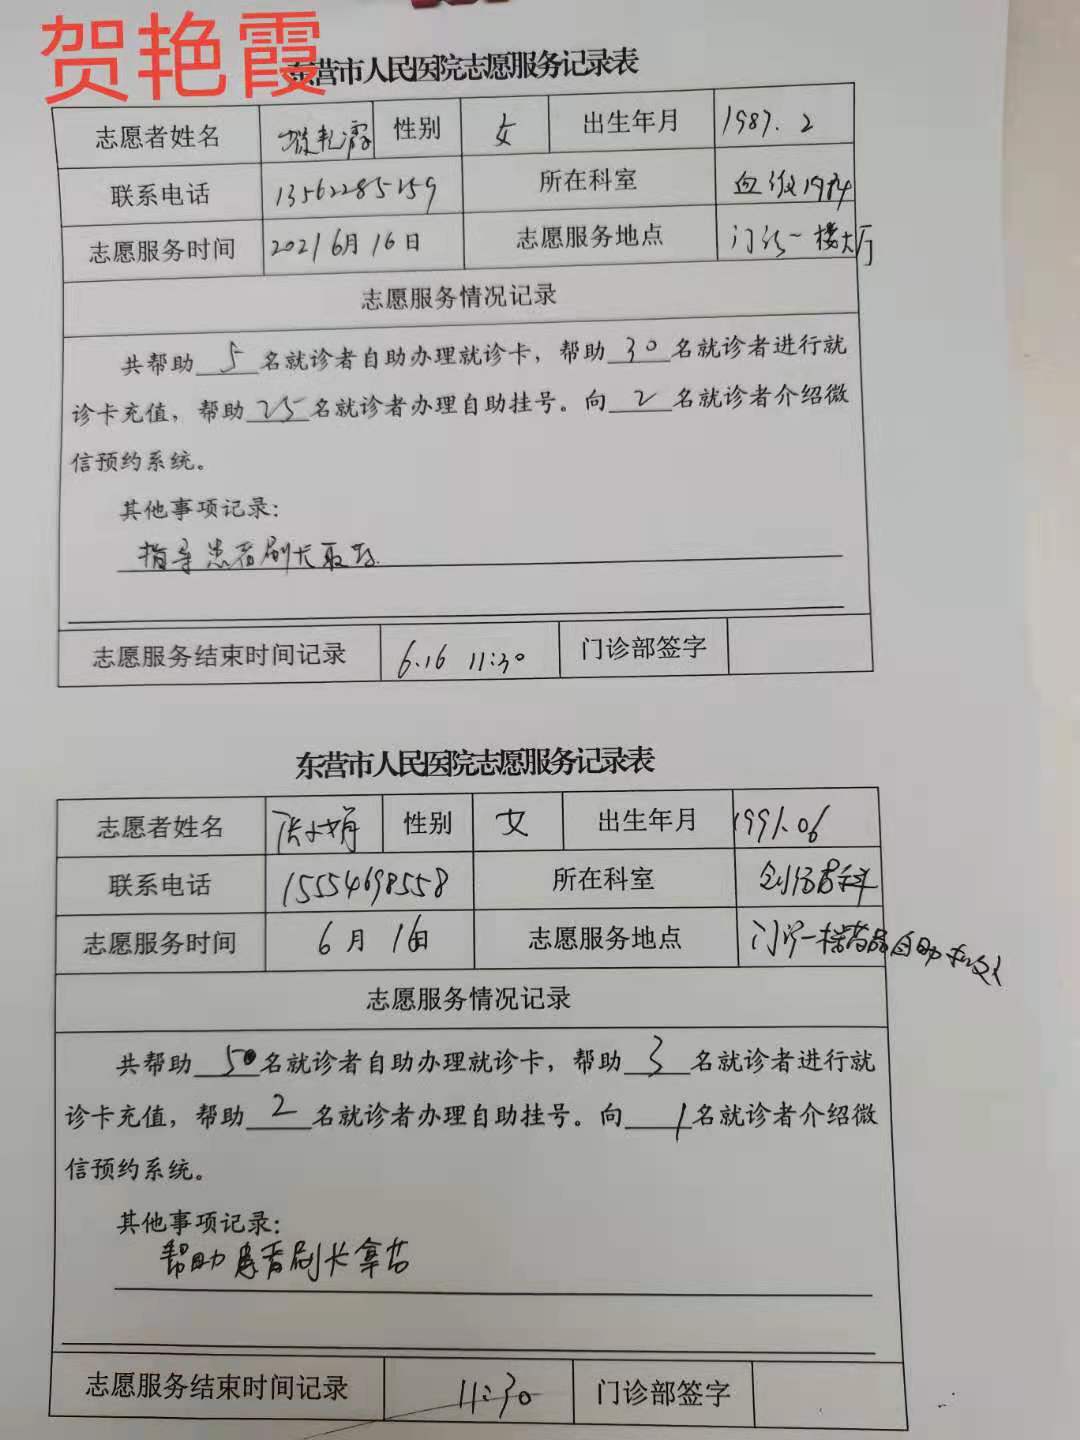 贺艳霞
东营市人民医院志愿服务记录表
志愿者姓名 性别 女 出生年月 1987.2
联系电话 13562285259 所在科室 血液
志愿服务时间 2021 6月16日 志愿服务地点 门诊一楼大厅
志愿服务情况记录
共帮助 5 名就诊者自助办理就诊卡，帮助 30 名就诊者进行就
诊卡充值，帮助 25 名就诊者办理自助挂号。向 2 名就诊者介绍微
信预约系统。
其他事项记录：
指导患者刷卡取药
志愿服务结束时间记录 6.16 11:30 门诊部签字
东营市人民医院志愿服务记录表
志愿者姓名 张小娟 性别 女 出生年月 1991.06
联系电话 15554698558 所在科室 创伤骨科
志愿服务时间 6月16日 志愿服务地点 门诊一楼药品自助
志愿服务情况记录
共帮助 5 名就诊者自助办理就诊卡，帮助 3 名就诊者进行就
诊卡充值，帮助 2 名就诊者办理自助挂号。向 1 名就诊者介绍微
信预约系统。
其他事项记录：
帮助患者刷卡拿药
志愿服务结束时间记录 11:30 门诊部签字